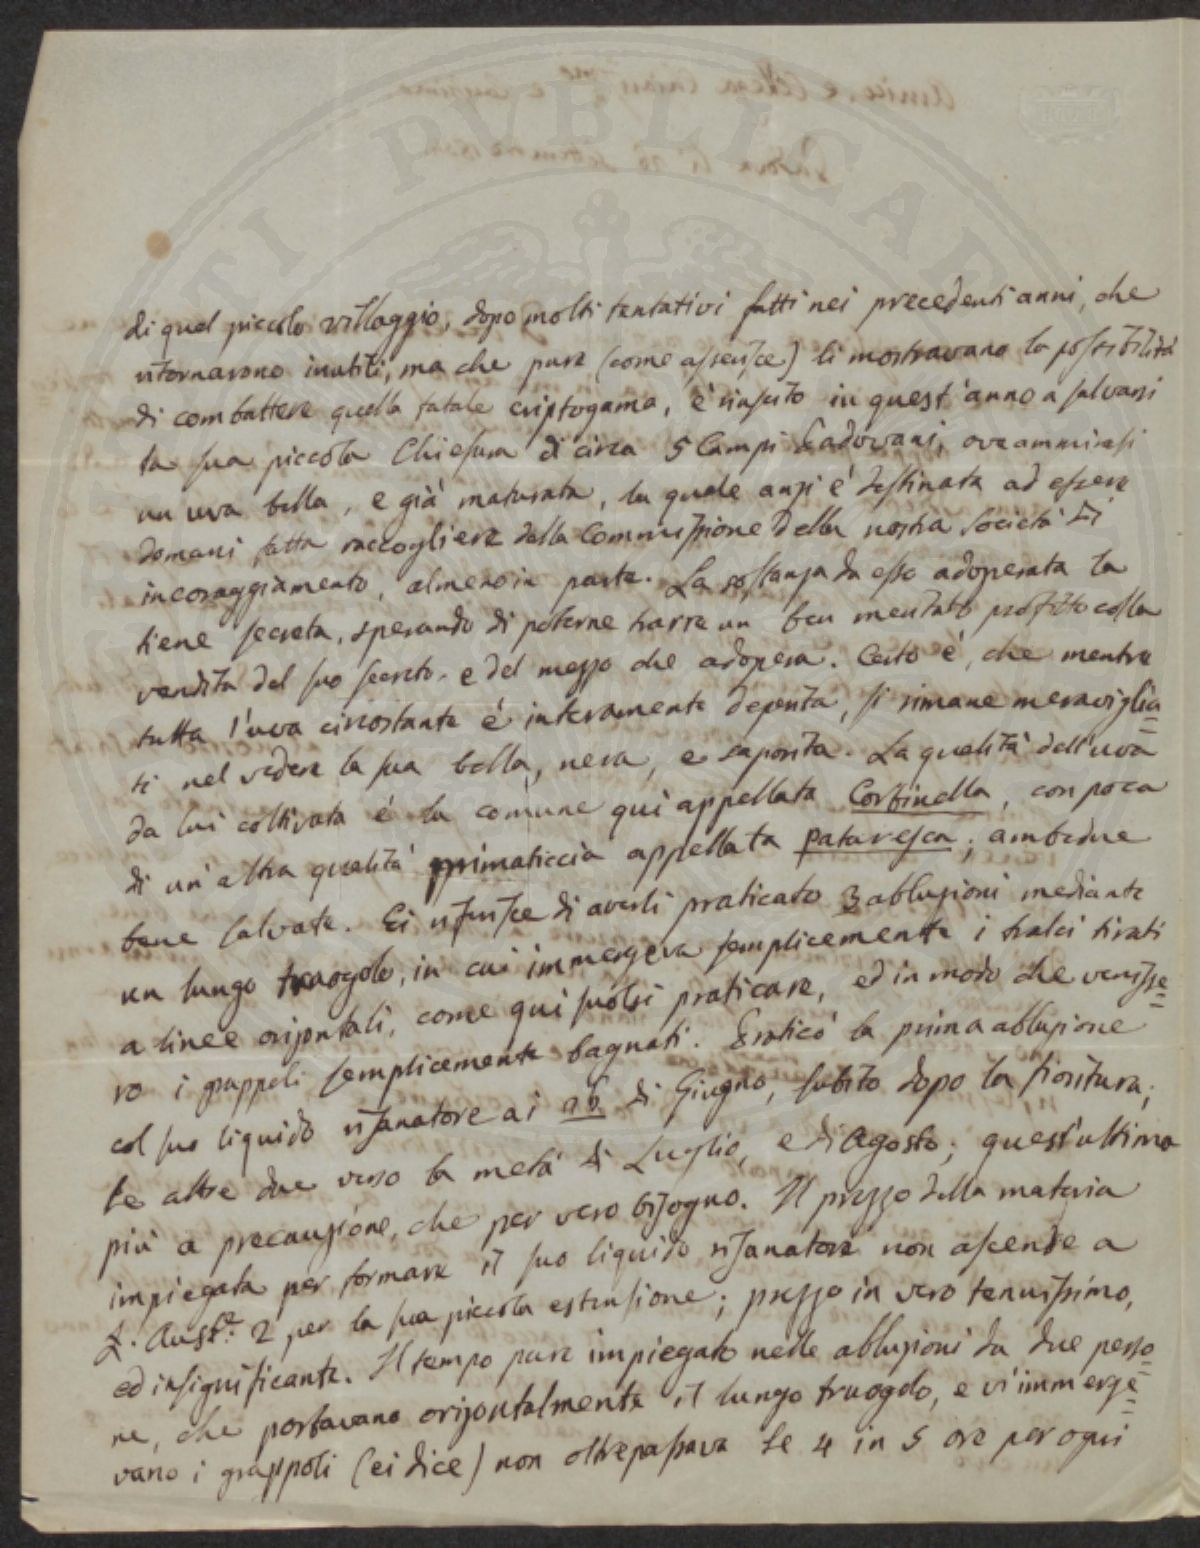 di quel piccolo villaggio, dopo molti tentativi fatti nei precedenti anni, che
ritornarono inutili, ma che pure (come asserisce) li mostravano la possibilità
di combattere quella fatale criptogama, è riuscito in quest'anno a salvarsi
la sua piccola Chiesura di circa 5 Campi Padovani, ove ammirasi
un uva bella, e già maturata, la quale anzi è destinata ad essere
domani fatta raccogliere dalla Commissione della nostra Società di
incoraggiamento, almeno in parte. La sostanza da esso adoperata la
tiene secreta, sperando di poterne trarre un ben meritato profitto colla
vendita del suo secreto, e del mezzo che adopera. Certo è, che mentre
tutta l'uva circostante è interamente deperita, si rimane meraviglia=
ti nel vedere la sua bella, nera, e saporita. La qualità dell'uva
da lui coltivata è la comune qui appellata Corbinella, con poca
di un'altra qualità primaticcia appellata pataresca; ambidue
bene salvate. Ei riferisce di averli praticato 3 abluzioni mediante
un lungo truogolo, in cui immergeva semplicemente i tralci tirati
a linee orizontali, come qui suolsi praticare, ed in modo che venisse=
ro i grappoli semplicemente bagnati. Praticò la prima abluzione
col suo liquido risanatore ai di Giugno, subito dopo la fioritura;
le altre due verso la metà di Luglio, e di Agosto; quest'ultima
più a precauzione, che per vero bisogno. Il prezzo della materia
impiegata per formare il suo liquido risanatore non ascende a
L. Aust.e 2 per la sua piccola estensione; prezzo in vero tenuissimo,
ed insignificante. Il tempo pure impiegato nelle abluzioni da due perso=
ne, che portavano orizontalmente il lungo truogolo, e vi immerge=
vano i grappoli (ei dice) non oltrepassava le 4 in 5 ore per ogni